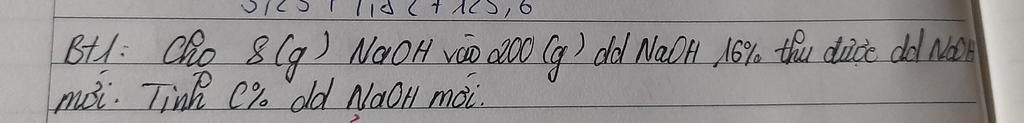 3123 + 11,2 + 125,6
Bt1: Cho 8(g) NaOH vào 200 (g) dd NaOH 16% thu được dd NaOH
mới. Tính C% dd NaOH mới.